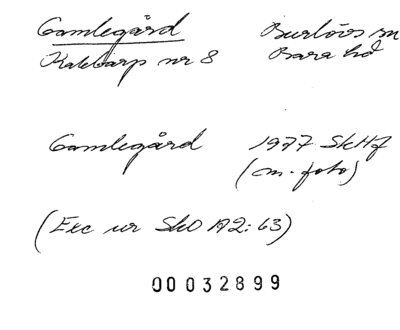 Gamlegård Burlövs sn
Kabbarp nr 8 Bara hd
Gamlegård 1977 SkHf
(m. foto)
(Exc ur SkO A2:63)
00032899